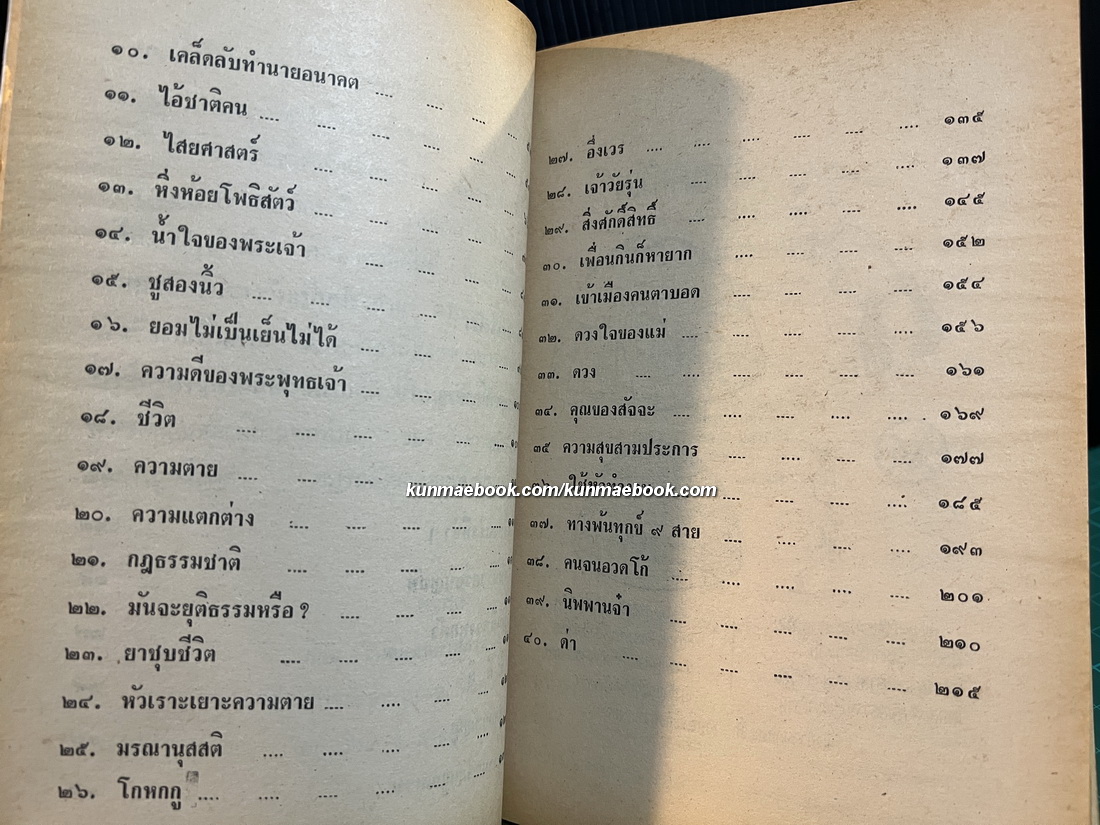 ๑๐. เคล็ดลับทำนายอนาคต .... ....
๑๑. ไอ้ชาติคน .... .... .... .... ....
๑๒. ไสยศาสตร์ .... .... .... ....
๑๓. หิ่งห้อยโพธิสัตว์ .... .... .... ....
๑๔. น้ำใจของพระเจ้า .... .... ....
๑๕. ชูสองนิ้ว .... .... .... .... ....
๑๖. ยอมไม่เป็นเย็นไม่ได้ .... .... ....
๑๗. ความดีของพระพุทธเจ้า .... .... ....
๑๘. ชีวิต .... .... .... .... ....
๑๙. ความตาย .... .... .... .... ....
๒๐. ความแตกต่าง .... .... .... ....
๒๑. กฎธรรมชาติ .... .... .... ....
๒๒. มันจะยุติธรรมหรือ ? .... .... ....
๒๓. ยาชุบชีวิต .... .... .... ....
๒๔. หัวเราะเยาะความตาย .... .... ....
๒๕. มรณานุสสติ .... .... .... ....
๒๖. โกหกกู .... .... .... .... ....
๒๗. อึ่งเวร .... .... .... .... .... .... ๑๓๕
๒๘. เจ้าวัยรุ่น .... .... .... .... .... ๑๓๗
๒๙. สิ่งศักดิ์สิทธิ์ .... .... .... .... ๑๔๕
๓๐. เพื่อนกินก็หายาก .... .... .... .... ๑๕๒
๓๑. เข้าเมืองคนตาบอด .... .... .... .... ๑๕๔
๓๒. ดวงใจของแม่ .... .... .... .... .... ๑๕๖
๓๓. ดวง .... .... .... .... .... .... ๑๖๑
๓๔. คุณของสัจจะ .... .... .... .... .... ๑๖๙
๓๕ ความสุขสามประการ .... .... .... .... ๑๗๗
๓๖. .... .... .... .... ๑๘๕
๓๗. ทางพ้นทุกข์ ๙ สาย .... .... .... .... ๑๙๓
๓๘. คนจนอวดโก้ .... .... .... .... .... ๒๐๑
๓๙. นิพพานจ๋า .... .... .... .... .... ๒๑๐
๔๐. ด่า .... .... .... .... .... .... ๒๑๕
kunmaebook.com/kunmaebook.com